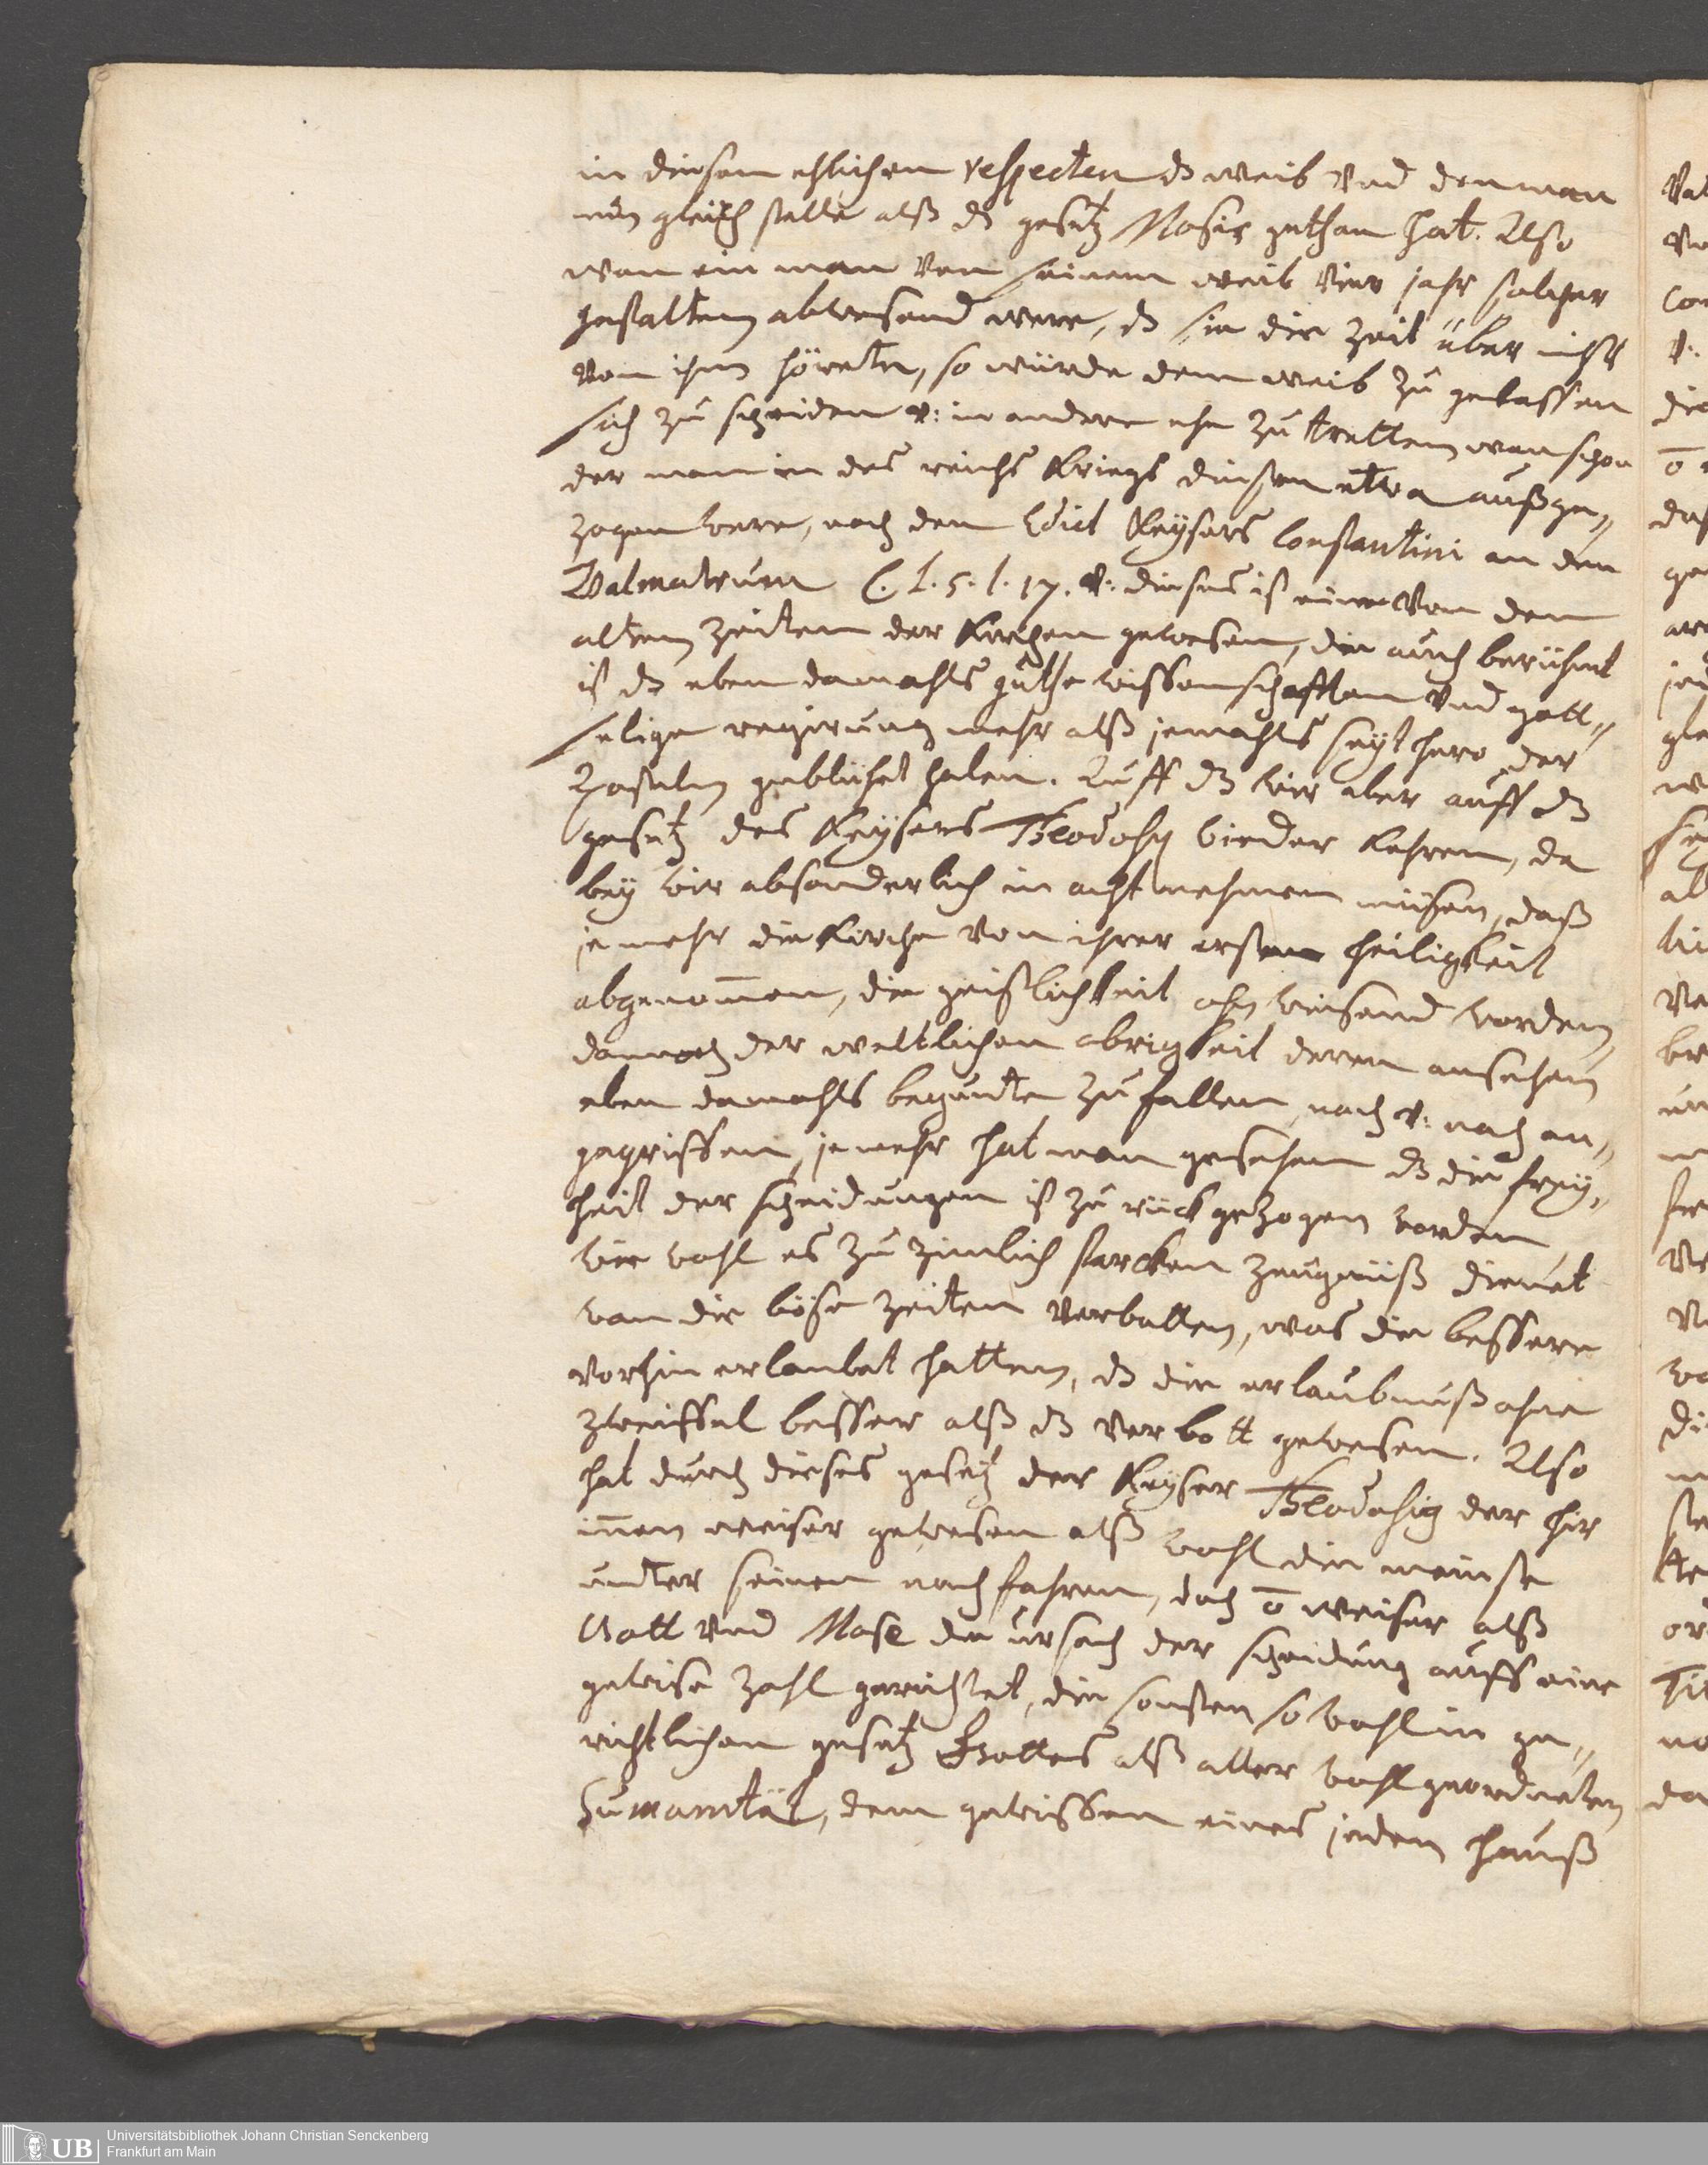 in diesem ehlichem respecten dz weib vnd den man
nun gleich stelle alß dz gesetz Mosis gethan hat. Also
wan ein man von seinem weib vier jahr solcher
gestalten abwesend were, dz sie die Zeit über nichts
von ihm höreten, so würde dem weib zu gelassen
sich zu scheiden v: in andere ehe zu tretten wan schon
der man in des reichs Kriegs diensten etwa außge„
zogen were, nach dem Edict Keysers Constantini an den
Dalmatium C. L. 5. t. 17. v: dieses ist eine von dem
alten Zeiten der Kirchen gewesen, die auch berühmt
ist dz eben damahls guthe wissenschafften vnd gott„
selige regirung mehr alß jemahls seyt hero der
Aposteln geblühet haben. Auff dz wir aber auff dz
gesetz des Keysers Theodosy wieder Kehren, da
bey wir absonderlich in acht nehmen müsen, daß
je mehr die Kirche von ihrer ersten heiligkeit
abgenom̄en, die geistlichkeit ohn wisend worden,
dannoch der weltlichen obrigkeit deren ansehen
eben damahls begunte zu fallen, nach v: nach an„
gegriffen, je mehr hat man gesehen dz die frey„
heit der scheidungen ist zu rück gezogen worden,
wie wohl es zu zimlich starcken Zeugnüß dienet
wan die böse Zeiten verbotten, was die bessere
vorhin erlaubet hatten, dz die erlaubnuß ohne
Zweiffel besser alß dz verbott gewesen. Also
hat durch dieses gesetz der Keyser Theodosig der hir
in̄en weiser gewesen alß wohl die meinste
undter seinen nach fahren, doch ō weiser alß
Gott vnd Mose die ursach der scheidung auff eine
gewise Zahl gerichtet, die sonsten so wohl in ge„
richtlichen gesetz Gottes alß aller wohl geordneten
Humanität, dem gewissen eines jeden hauß